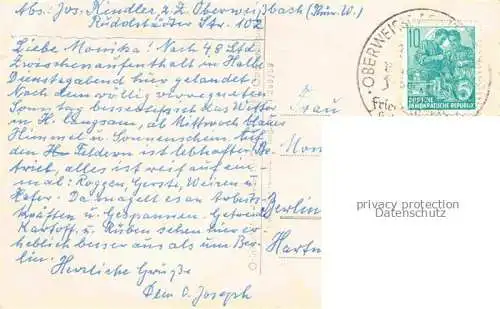 Abs: Jos. Kindler z.Z. Oberweißbach (Thür. W.)
Rudolstädter Str. 102
Liebe Monika! Nach 48 Std.
Zwischenaufenthalt in Halle
Dienstagabend hier gelandet.
Nach dem völlig verregneten
Sonntag besserte sich das Wetter
in H. langsam, ab Mittwoch blauer
Himmel und Sonnenschein. Auf
den Feldern ist lebhafter Be-
trieb, alles ist reif auf ein-
mal: Roggen, Gerste, Weizen u.
Hafer. Da mangelt es an Arbeits-
kräften u. Gespannen. Getreide,
Kartoff. u. Rüben sehen hier er-
heblich besser aus als um Ber-
lin. Herzliche Grüße
Dein O. Joseph
Frau
Mon
Berlin
Hartm
OBERWEISSB
10
DEUTSCHE
DEMOKRATISCHE REPUBLIK
privacy protection
Datenschutz